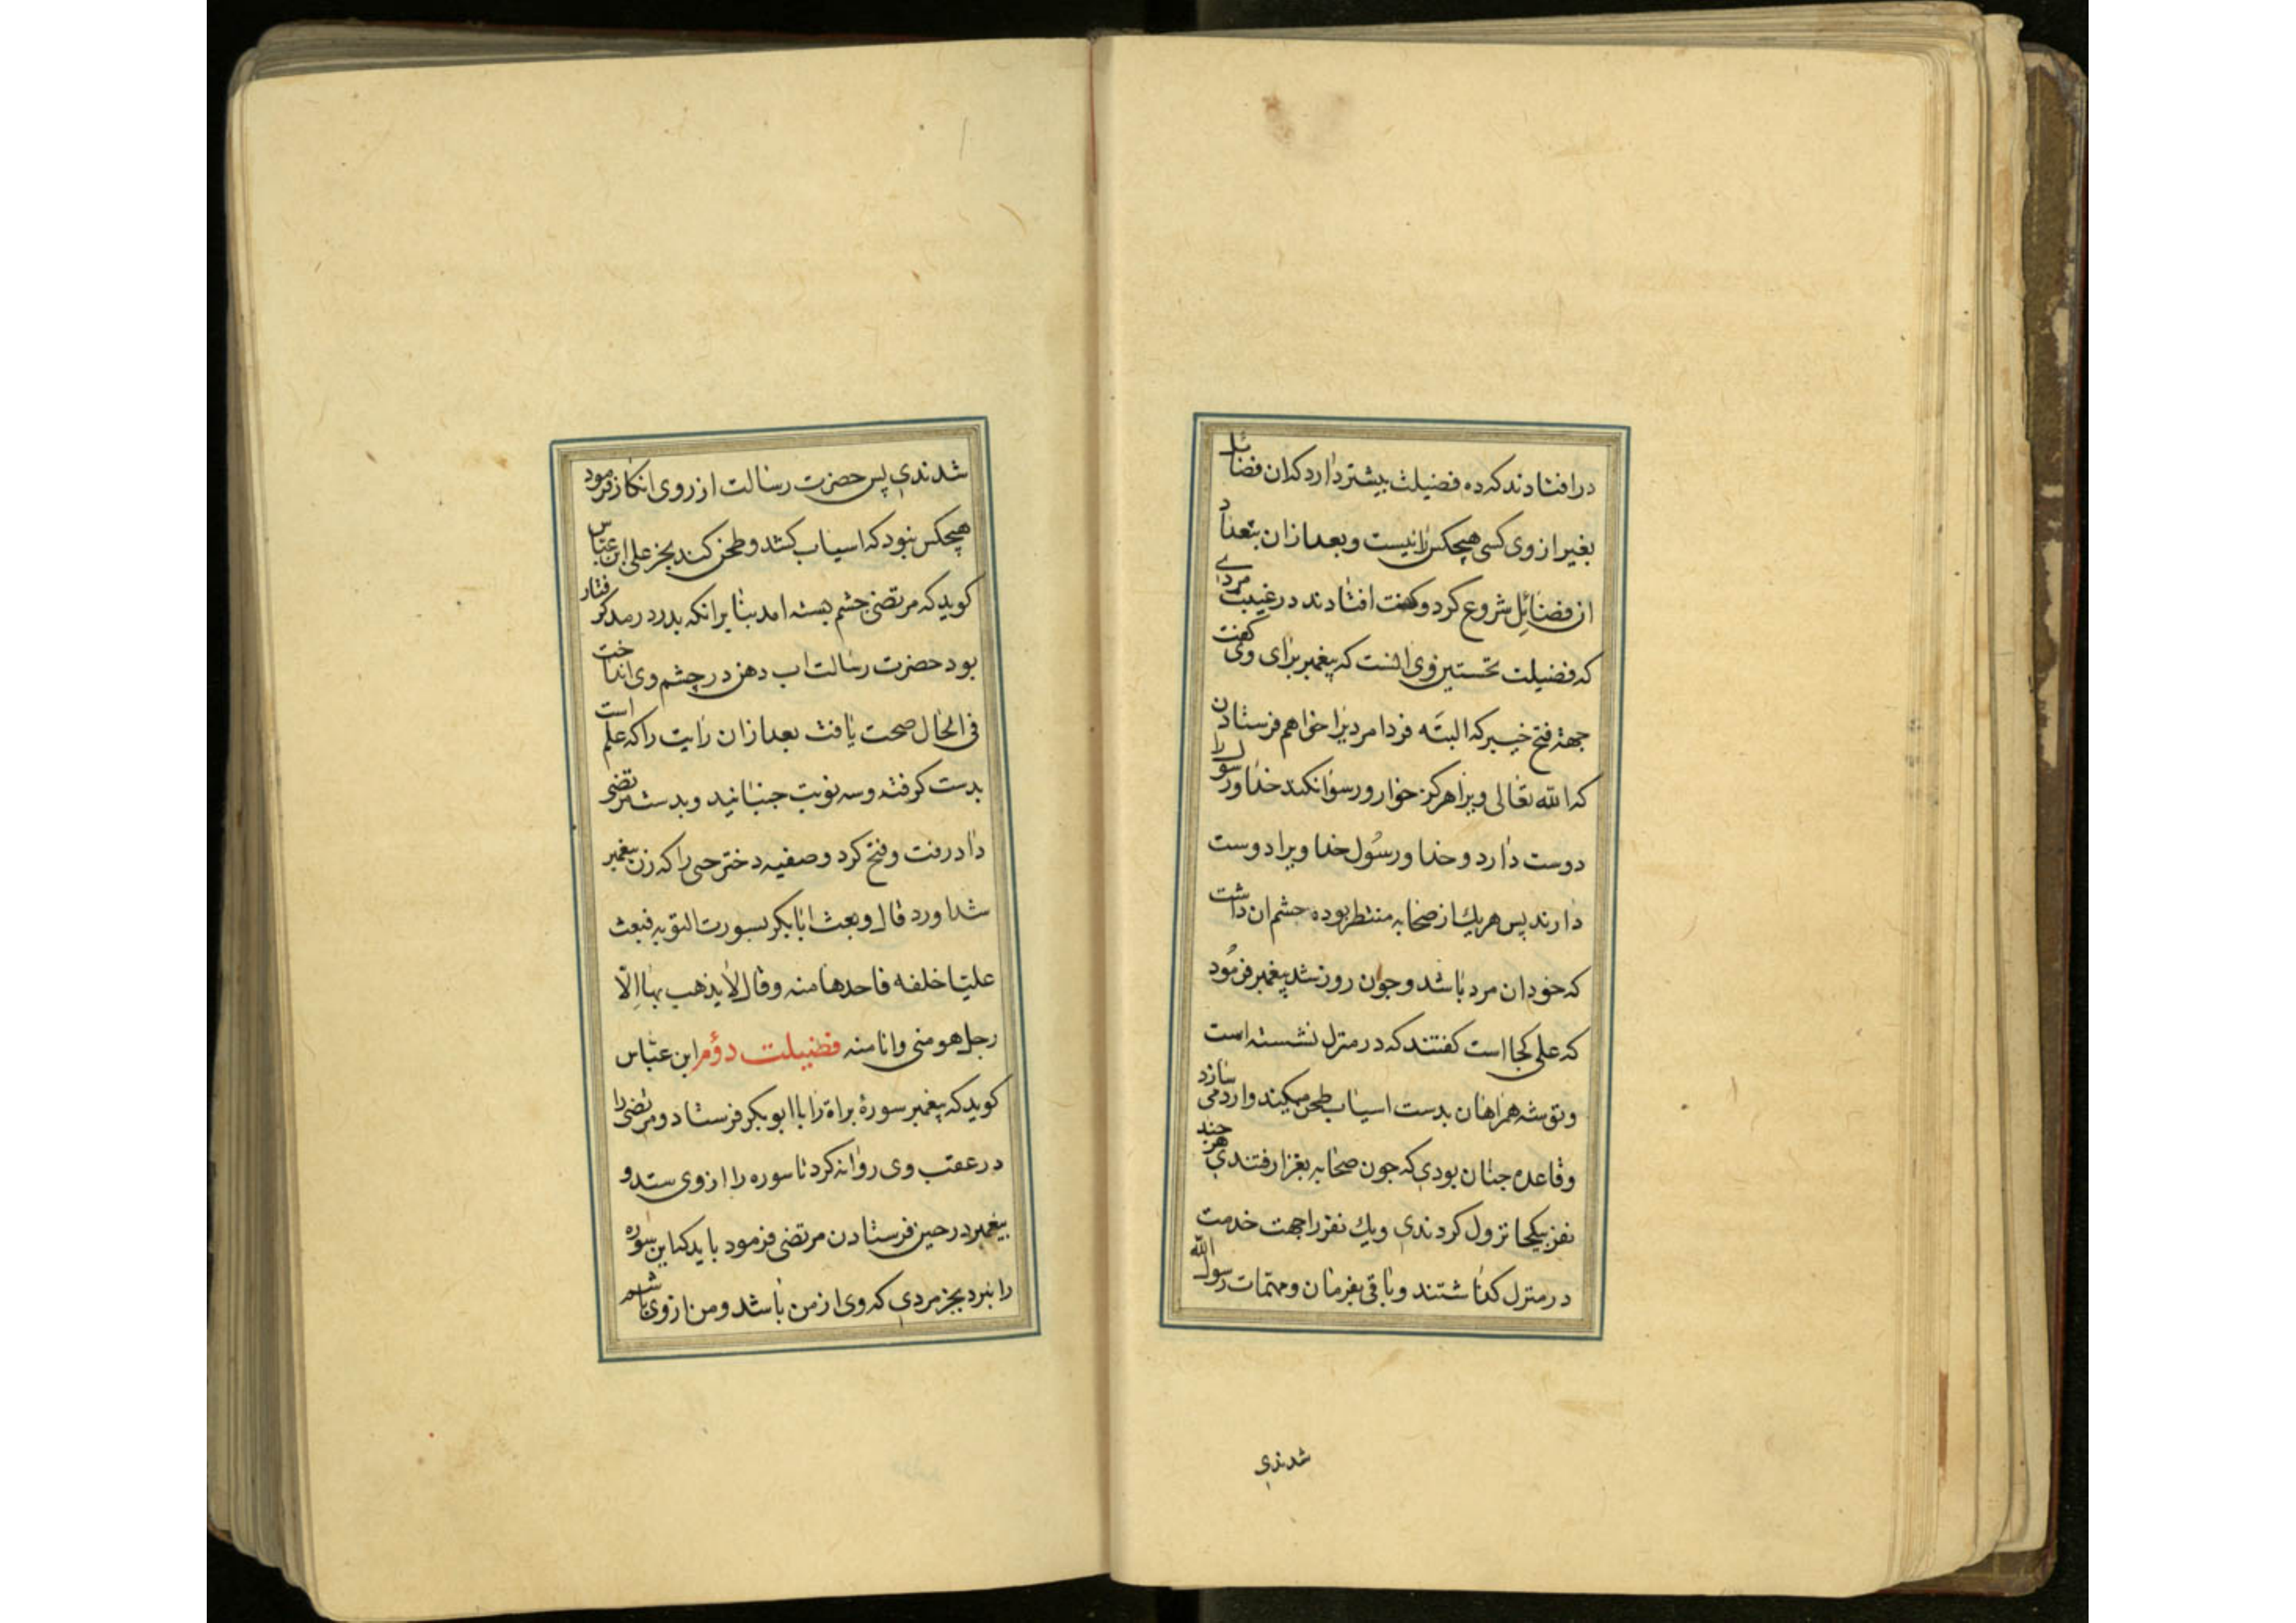 در افتادند که ده فضیلت بیشتر دارد که ان فضائل
بغیر از وی کسی هیچکس را نیست و بعد از ان بتعداد
ان فضائل شروع کرد و کفت افتادند در غیبت مردی
که فضیلت نخستین وی انست که پیغمبر برای وی کفت
جهة فتح خیبر که البته فردا مردیرا خواهم فرستادن
که الله تعالی ویرا هرکز خوار و رسوا نکند خدا و رسول را
دوست دارد و خدا و رسول خدا ویرا دوست
دارند پس هریك از صحابه منتظر بوده چشم ان داشت
که خود ان مرد باشد و جون روز شد پیغمبر فرمود
که علی کجا است کفتند که در منزل نشسته است
و توشه همراهان بدست اسیاب طحن میکند و ارد می سازد
و قاعده جنان بودی که جون صحابه بغزا رفتندی هر جند
نفر بیکجا نزول کردندی ویك نفر را جهت خدمت
در منزل کذاشتند و باقی بفرمان و مهمات رسول الله
شدندی
شدندی پس حضرت رسالت از روی انکار فرمود
هیچکس نبود که اسیاب کشد و طحن کند بجز علی ابن عباس
کوید که مرتضی چشم بسته امد بنا برانکه بدرد رمد کرفتار
بود حضرت رسالت اب دهن در چشم وی انداخت
فی الحال صحت یافت بعد ازان رایت را که علم است
بدست کرفته و سه نوبت جنبانید و بدست مرتضی
داد رفت و فتح کرد و صفیه دختر حی را که زن پیغمبر
شد اورد قال و بعث ابابکر بسورت التوبه فبعث
علیا خلفه فاحدها منه وقال لا یذهب بها الا
رجل هو منی وانا منه فضیلت دوم ابن عباس
کوید که پیغمبر سورۀ براة را با ابوبکر فرستاد و مرتضی را
در عقب وی روانه کرد تا سوره را از وی ستد و
پیغمبر در حین فرستادن مرتضی فرمود باید که این سوره
را نبرد بجز مردی که وی از من باشد و من از وی باشم